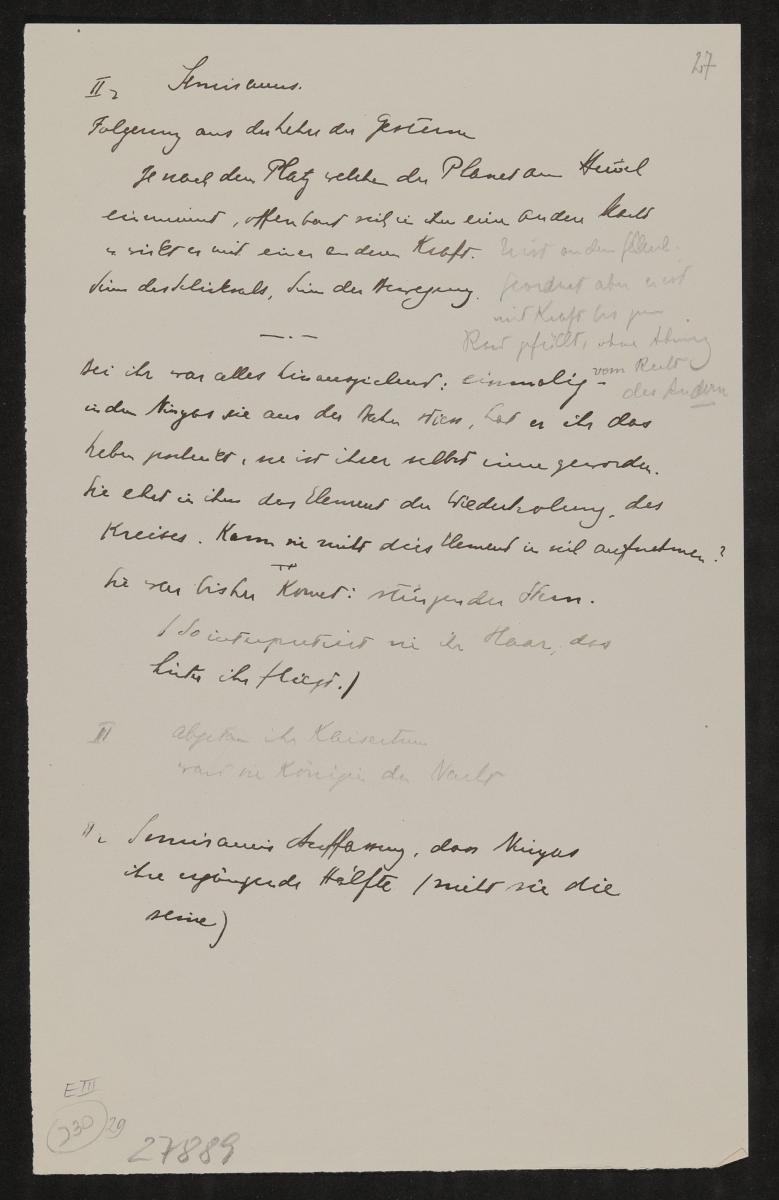 27
II 2 Semiramis.
Folgerung aus der Lehre der Gestirne
Je nach dem Platz welchen der Planet am Himmel
einnimmt, offenbart sich in ihm eine andere Macht
u wirkt er mit einer anderen Kraft.
Sinn des Schicksals, Sinn der Bewegung.
geordnet aber er ist
mit Kraft bis zum
Rand gefüllt, ohne Ahnung
vom Recht
des Andern
Bei ihr war alles hinausziehend: einmalig –
indem Ninyas sie aus der Bahn stiess, hat er ihr das
Leben geschenkt, sie ist ihrer selbst inne geworden.
Sie ehrt in ihm das Element der Wiederholung, des
Kreises. Kann sie nicht dies Element in sich aufnehmen?
Sie war bisher Komet: stürzender Stern.
(So interpretiert sie ihr Haar, das
hinter ihr fliegt.)
III abgetan ihr Kaisertum
ward sie Königin der Nacht
II 2 Semiramis Auffassung, dass Ninyas
ihre ergänzende Hälfte (nicht sie die
seine)
E III
230 29
27889